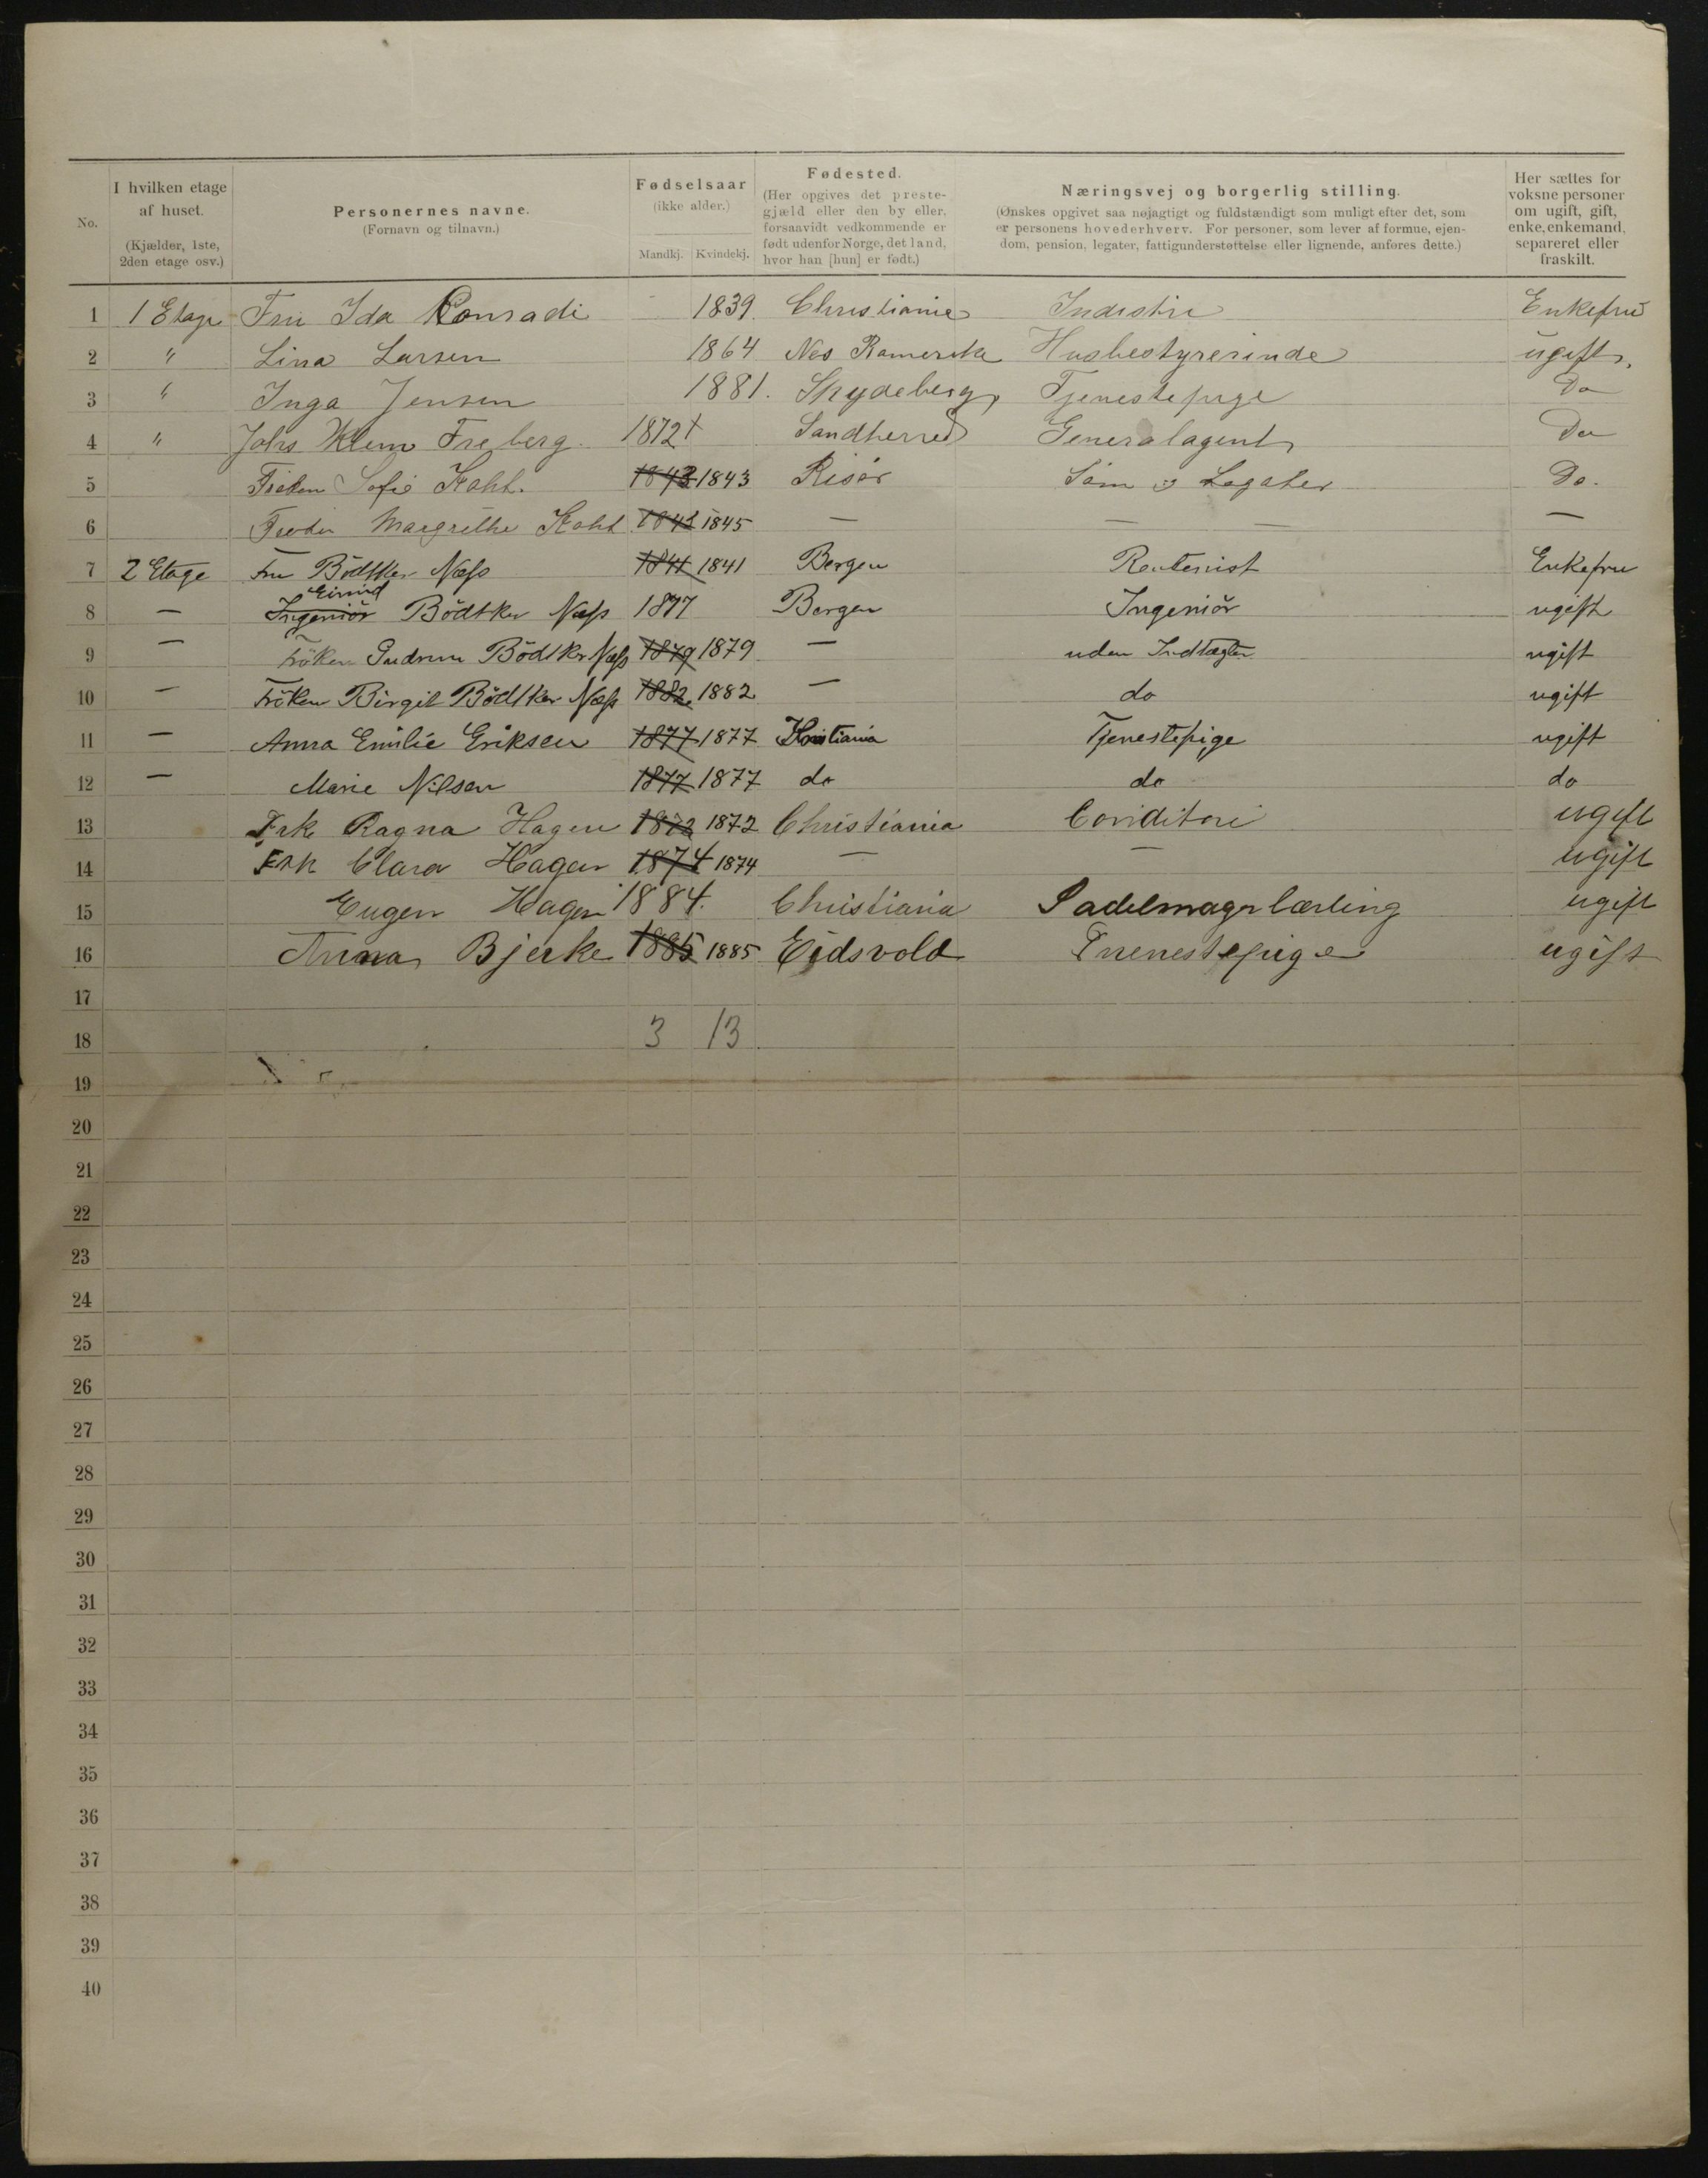 No. | I hvilken etage af huset. (Kjælder, 1ste, 2den etage osv.) | Personernes navne. (Fornavn og tilnavn.) | Fødselsaar (ikke alder.) Mandkj. Kvindekj. | Fødested. (Her opgives det prestegjæld eller den by eller, forsaavidt vedkommende er født udenfor Norge, det land, hvor han [hun] er født.) | Næringsvej og borgerlig stilling. (Ønskes opgivet saa nøjagtigt og fuldstændigt som muligt efter det, som er personens hovederhverv. For personer, som lever af formue, ejendom, pension, legater, fattigunderstøttelse eller lignende, anføres dette.) | Her sættes for voksne personer om ugift, gift, enke, enkemand, separeret eller fraskilt.
1 1 Etage Fru Ida Conradi 1839 Christiania Industri Enkefru
2 " Lina Larsen 1864 Nes Romerike Husbestyrerinde ugift
3 " Inga Jensen 1881. Skydeberg Tjenestepige Do
4 " Johs Klem Freberg 1872 Sandherred Generalagent Do
5 Frøken Sofie Kahl. 1843 1843 Risør Søm og Legater Do.
6 Margrethe Kahl 1845 — — — —
7 2 Etage Fru Bödtker Næss 1841 1841 Bergen Rentenist Enkefru
8 — Ingeniör Eivind Bödtker Næss 1877 Bergen Ingeniör ugift
9 — Fröken Gudrun Bödtker Næss 1879 1879 — uden Indtægter ugift
10 — Fröken Birgit Bödtker Næss 1882 1882 — do ugift
11 — Anna Emilie Eriksen 1877 1877 Kristiania Tjenestepige ugift
12 — Marie Nilsen 1877 1877 do do do
13 Frk Ragna Hagen 1872 1872 Christiania Conditori ugift
14 Frk Clara Hagen 1874 1874 — — ugift
15 Eugen Hagen 1884. Christiania Sadelmagerlærling ugift
16 Anna Bjerke 1885 1885 Eidsvold Tjenestepige ugift
17
18 3 13
19
20
21
22
23
24
25
26
27
28
29
30
31
32
33
34
35
36
37
38
39
40